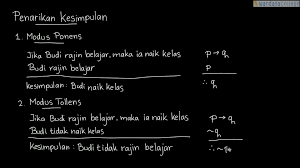 Penarikan Kesimpulan
1. Modus Ponens
Jika Budi rajin belajar, maka ia naik kelas
p → q
Budi rajin belajar
p
kesimpulan: Budi naik kelas
∴ q
2. Modus Tollens
Jika Budi rajin belajar, maka ia naik kelas
p → q
Budi tidak naik kelas
~q
Kesimpulan: Budi tidak rajin belajar
∴ ~p